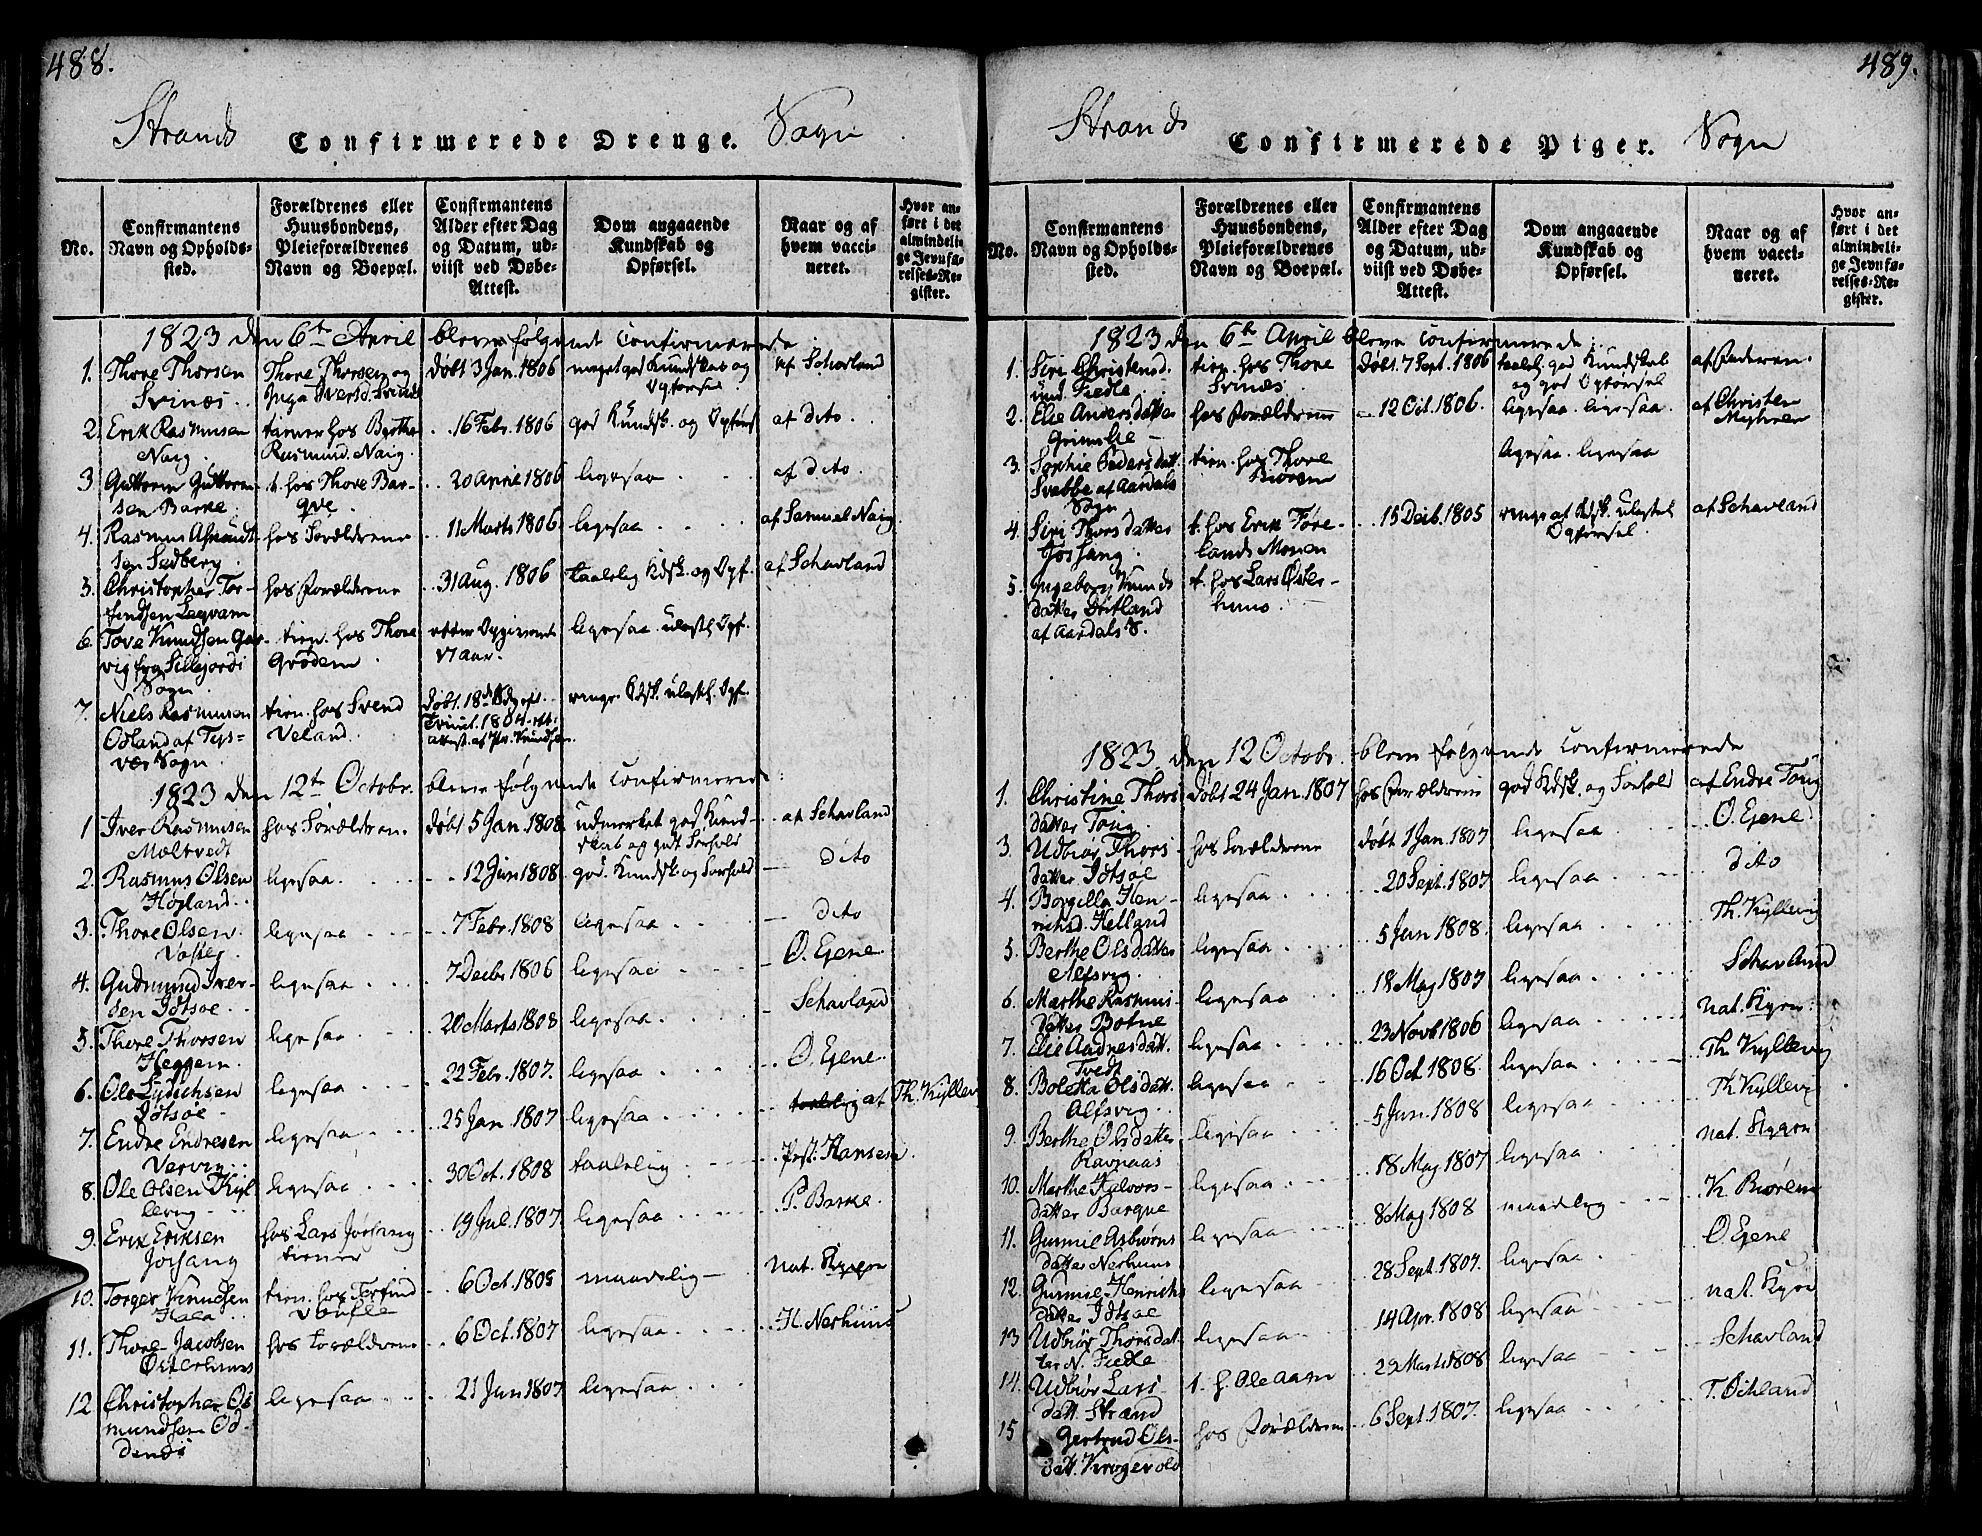 488.
Strands Confirmerede Drenge. Sogn
No.
Confirmantens Navn og Opholds-sted.
Forældrenes eller Huusbondens, Pleieforældrenes Navn og Boepæl.
Confirmantens Alder efter Dag og Datum, ud-viist ved Døbe-Attest.
Dom angaaende Kundskab og Opførsel.
Naar og af hvem vacci-neret.
Hvor an-ført i det almindeli-ge Jevnfø-relses-Re-gister.
1823 den 6te April bleve følgende Confirmerede
1. Thore Thorsen Svines. Thore Thorsen og Inga Iversd. Svines døbt 3 Jan. 1806 meget god Kundskab og Opførsel af Schavland
2. Erik Rasmusen Naig. tiener hos Berthe Rasmusd. Naig. 16 Febr. 1806 god Kundsk. og Opførs. af dito
3 Guttorm Guttorm-sen Barke. t. hos Thore Bar-qve. 20 April 1806 ligesaa af dito.
4. Rasmus Asmundsen Sedberg. hos Forældrene 11 Marts 1806 ligesaa af Samuel Naig
5. Christopher Tor-findsen Leqvam hos Forældrene 31 Aug. 1806 taalelig Kdsk. og Opf. af Schavland
6. Tove Knudsen Gar-vig fra Sillejords Sogn. tien. hos Thore Grödem. efter Opgivende 17 Aar. ligesaa ulastel. Opf.
7. Niels Rasmusen Odland af Tys-vær Sogn. tien. hos Svend Veland. døbt. 18de Sdg eft. Trinit. 1804. ringe Kdsk. ulastel. Opf.
1823 den 12te Octobr. bleve følgende Confirmerede:
1 Iver Rasmusen Mæltvedt hos Forældren. døbt 5 Jan. 1808 udmerket god Kund-skab og godt Forhold af Schavland
2. Rasmus Olsen Høgland. ligesaa. 12 Jun 1808 god. Kundsk. og Forhold dito
3. Thore Olsen ligesaa 7 Febr. 1808 ligesaa dito
4. Gudmund Iver-sen Idtsøe ligesaa 7 Decbr 1806 ligesaa O. Ejene.
5. Thore Thorsen Heggem. ligesaa 20 Marts 1808 ligesaa. Schavland
6. Ole Lydichsen Idtsøe ligesaa 22 Febr. 1807. ligesaa O. Ejene.
7. Endre Endresen Vervig ligesaa 25 Jan 1807 ligesaa af Th. Kyllevig
8. Ole Olsen Kyl-levig ligesaa 30 Oct. 1808 taalelig Præst. Hansen.
9. Erik Eriksen Jøssang hos Lars Jørsang tiener 19 Jul. 1807 ligesaa P. Barke.
10. Torger Knudsen Hala tien. hos Torfind 6 Oct. 1805 maadelig nat. Kopper
11. Thore Jacobsen Østerhuus hos Forældrene 6 Oct. 1807 ligesaa H. Nerhuus
12 Christopher Os-mundsen Od-denes ligesaa 21 Jun 1807 ligesaa
489.
Strands Confirmerede Piger. Sogn
No.
Confirmantens Navn og Opholds-sted.
Forældrenes eller Huusbondens, Pleieforældrenes Navn og Boepæl.
Confirmantens Alder efter Dag og Datum, ud-viist ved Døbe-Attest.
Dom angaaende Kundskab og Opførsel.
Naar og af hvem vacci-neret.
Hvor an-ført i det almindeli-ge Jevnfø-relses-Re-gister.
1823 den 6te April bleve Confirmerede
1. Siri Christensd. und. Fiedle tien. hos Thore Svines døbt. 7 Sept. 1806 taalelig god Kundskab og god Opførsel af Faderen.
2. Elie Andersdatter Grimslie hos Forældrene 12 Oct. 1806. ligesaa. ligesaa. af Christen Myhren
3. Sophie Pedersdatt. Svebbe af Aardals Sogn tien. hos Thore Biören ligesaa. ligesaa
4. Siri Thorsdatter Jøssang. t. hos Erik Føre-lands Monen 15 Decb. 1805 ringe af Kdsk. ulastel Opførsel. af Schavland
5. Ingeborg Knuds datter Östland af Aardals S. t. hos Lars Øster-huus.
1823 den 12 Octobr. bleve følgende Confirmerede
1. Christine Thors datter Toug. døbt 24 Jan. 1807 hos Forældrene god Kdsk. og Forhold af Endre Toug
3. Udbiør Thors-datter Idtsøe hos Forældrene døbt 1 Jan. 1807 ligesaa O. Ejene
4. Borgilla Hen-richsd. Helland ligesaa 20 Sept. 1807 ligesaa dito
5. Berthe Olsdatter Alfsvig. ligesaa 5 Jun 1808. ligesaa Th. Kyllevig
6. Marthe Rasmus-datter Botne ligesaa 18 Maj 1807 ligesaa Schavland
7. Elie Andersdatt. Tvedt ligesaa 23 Novb 1806 ligesaa nat. Kopper.
8. Boletta Olsdatt. Alfsvig ligesaa 16 Oct 1808. ligesaa Th. Kyllevig
9. Berthe Olsdatter Ravnaas ligesaa 5 Jun. 1808 ligesaa Th Kyllevig
10. Marthe Halvors-datter Barqve ligesaa 18 Maj 1807 ligesaa nat. Kopper
11. Gunnil Asbiørns datter Nerhuus ligesaa 8 Maj 1808 maadelig K. Biören
12. Gunnil Henrichs datter Idtsøe ligesaa 28 Sept. 1807. ligesaa O. Ejene
13 Udbiør Thorsdat-ter N. Fiedle ligesaa 14 Apr. 1808 ligesaa nat. Kopp
14. Udbiør Lars-datt. Strand t. h. Ole Aam 29 Marts 1808 ligesaa Schavland
15 Gertrud Ols-datt. Krogevold hos Forældrene 6 Sept. 1807. ligesaa T. Ochland